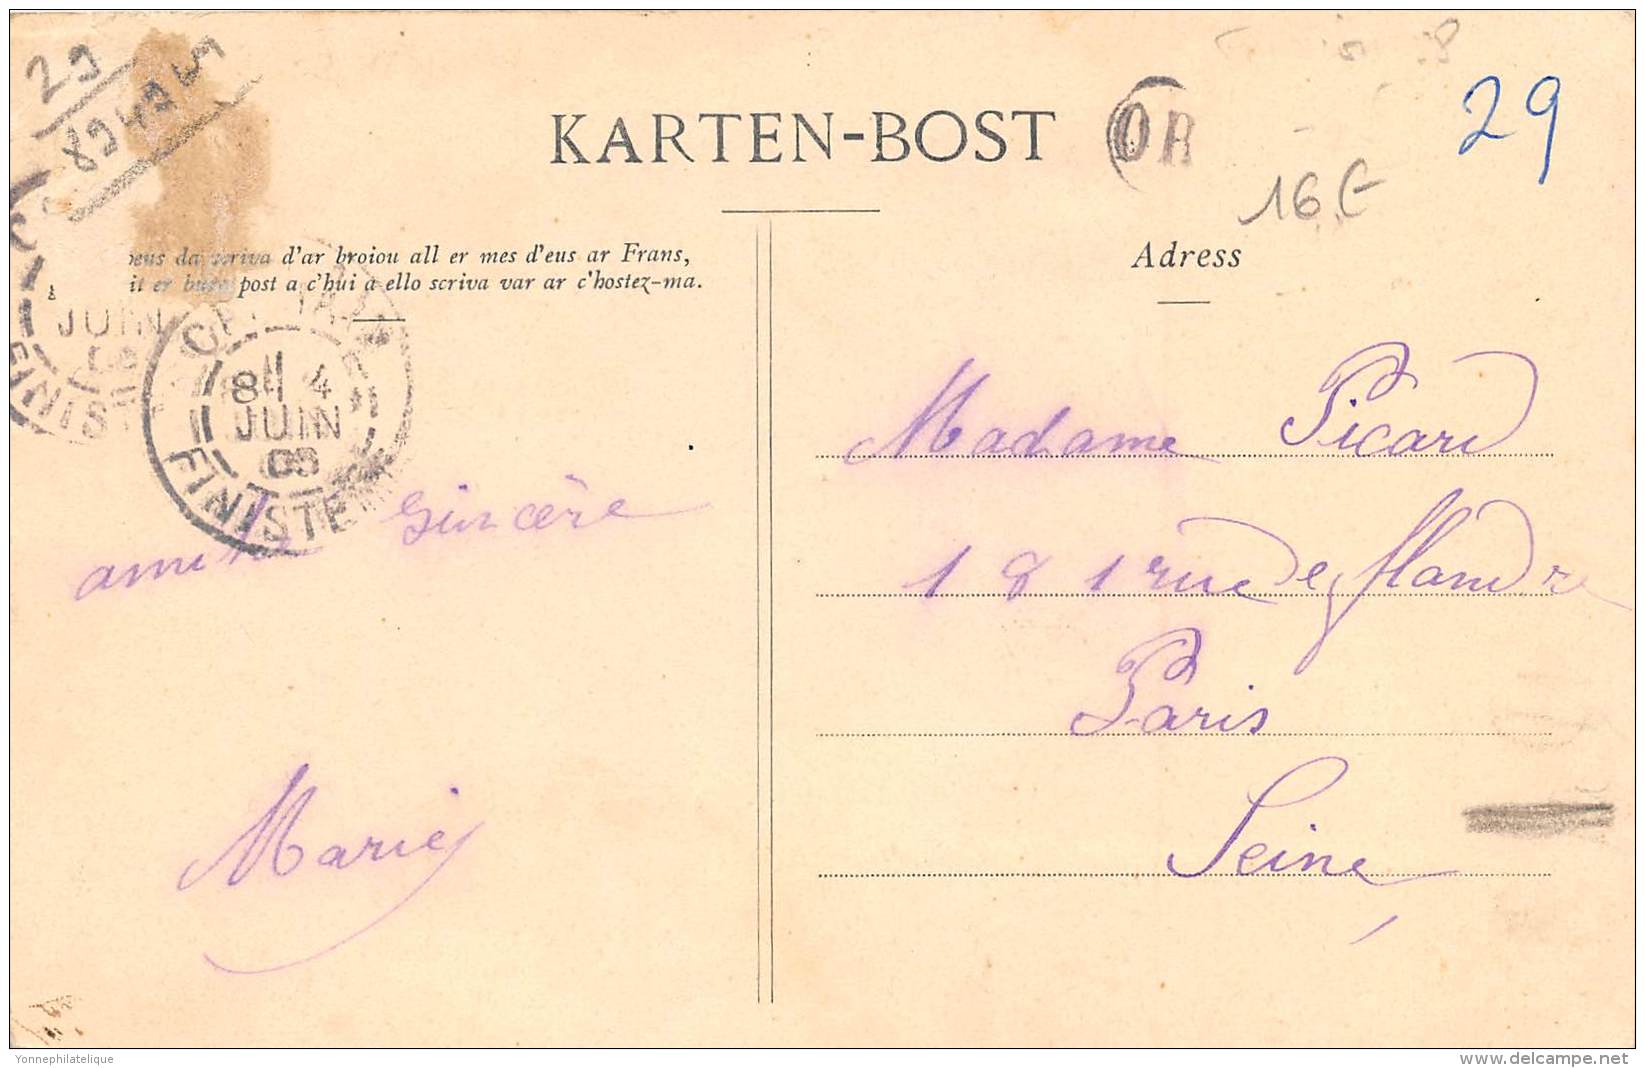 29
89494
KARTEN-BOST
OR
29
16 €
da scriva d'ar broiou all er mes d'eus ar Frans,
post a c'hui a ello scriva var ar c'hostez-ma.
Adress
JUIN
FINIST
8 4
JUIN
03
FINISTE
amitié sincère
Marie
Madame Picard
181 rue de flandre
Paris
Seine
Yonnephilatelique
delcampe.net